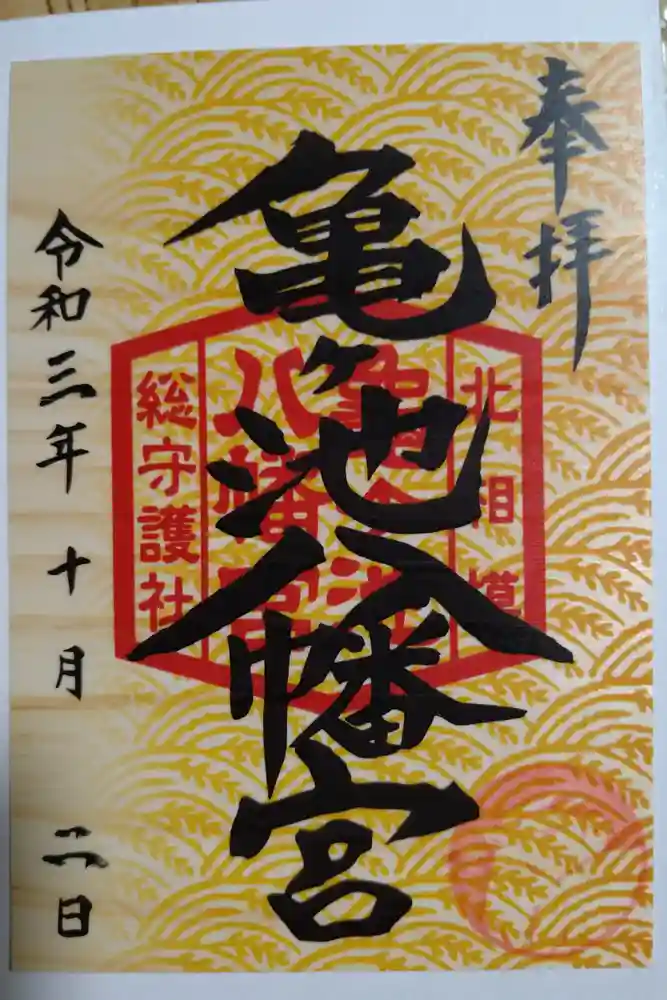 奉拝
亀ヶ池八幡宮
北相模
亀ヶ池
八幡宮
総守護社
令和三年十月二日